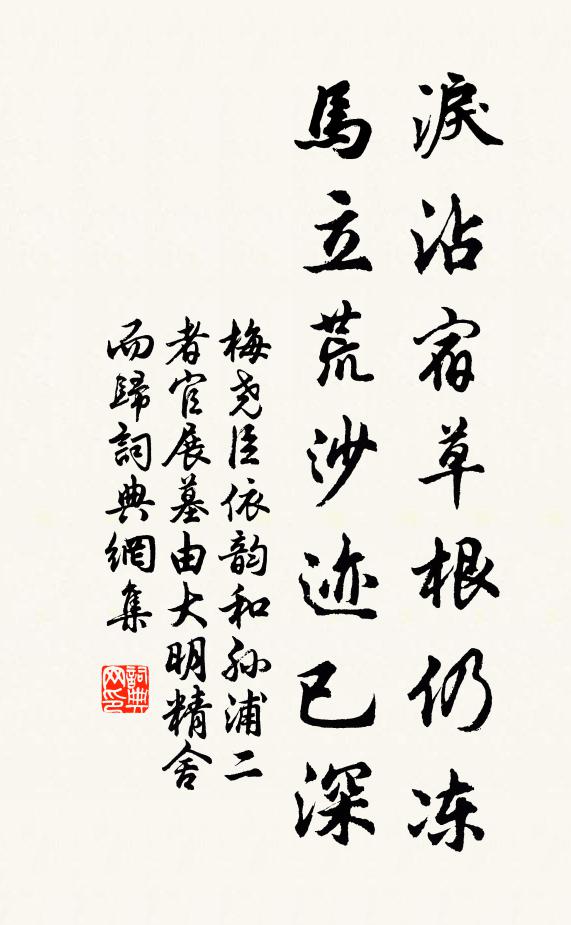 淚沾宿草根仍冻
馬立荒沙迹已深
梅尧臣依韵和孙浦二
者官展墓由大明精舍
而歸詞典網集
詞典网印